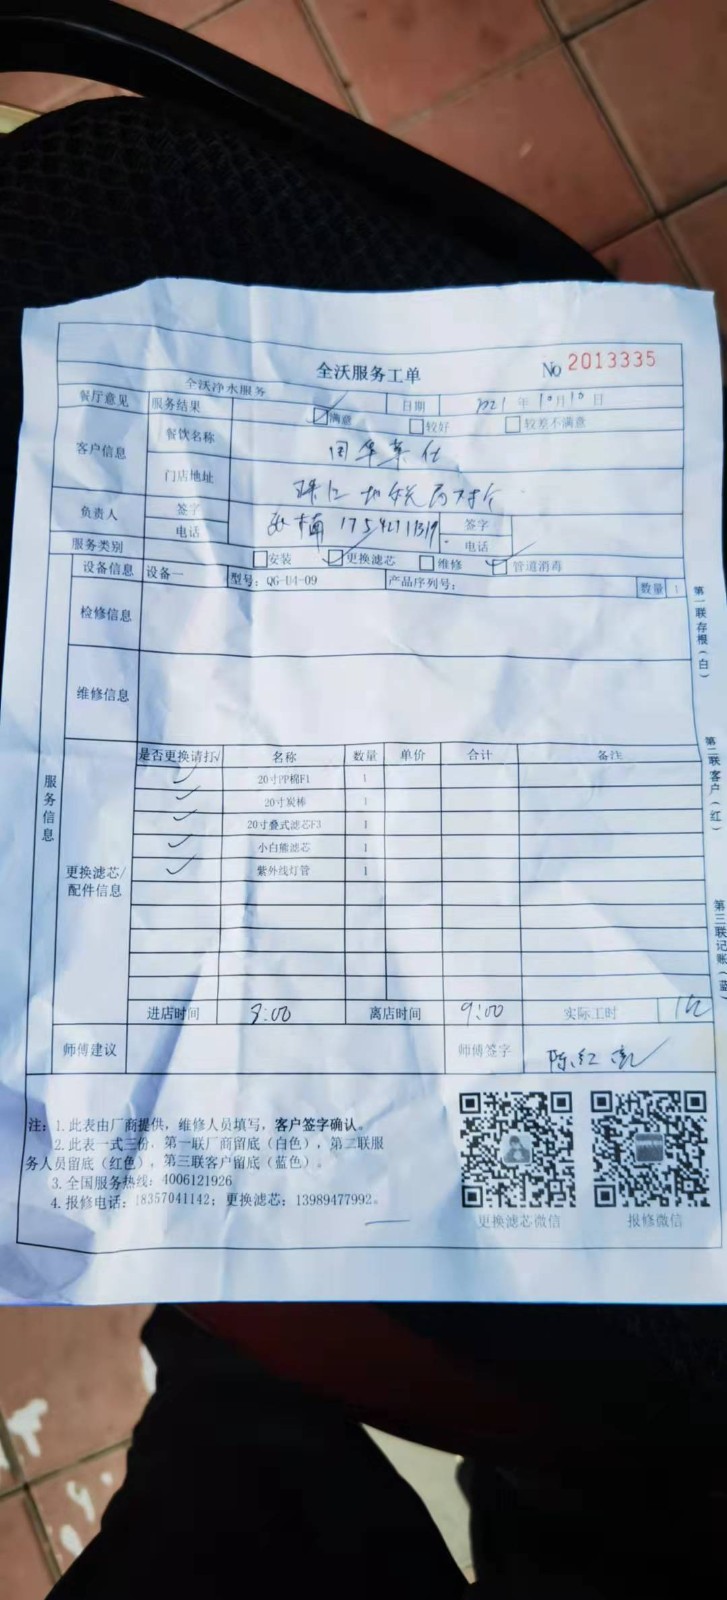 全沃服务工单
No 2013335
全沃净水服务
餐厅意见 服务结果 满意 日期 2021 年 10 月 10 日
较好 较差不满意
客户信息 餐饮名称
门店地址
负责人 签字 签字
电话 电话
服务类别 安装 更换滤芯 维修 管道消毒
设备信息 设备一 型号：QG-U4-09 产品序列号： 数量 1
检修信息
维修信息
服务信息
是否更换请打√ 名称 数量 单价 合计 备注
✓ 20寸PP棉F1 1
✓ 20寸炭棒 1
✓ 20寸叠式滤芯F3 1
✓ 小白熊滤芯 1
✓ 紫外线灯管 1
更换滤芯/
配件信息
进店时间 8:00 离店时间 9:00 实际工时
师傅建议 师傅签字 陈红
注：1.此表由厂商提供，维修人员填写，客户签字确认。
2.此表一式三份，第一联厂商留底（白色），第二联服
务人员留底（红色），第三联客户留底（蓝色）。
3.全国服务热线：4006121926
4.报修电话：18357041142；更换滤芯：13989477992。
更换滤芯微信 报修微信
第一联存根（白）
第二联客户（红）
第三联记账（蓝